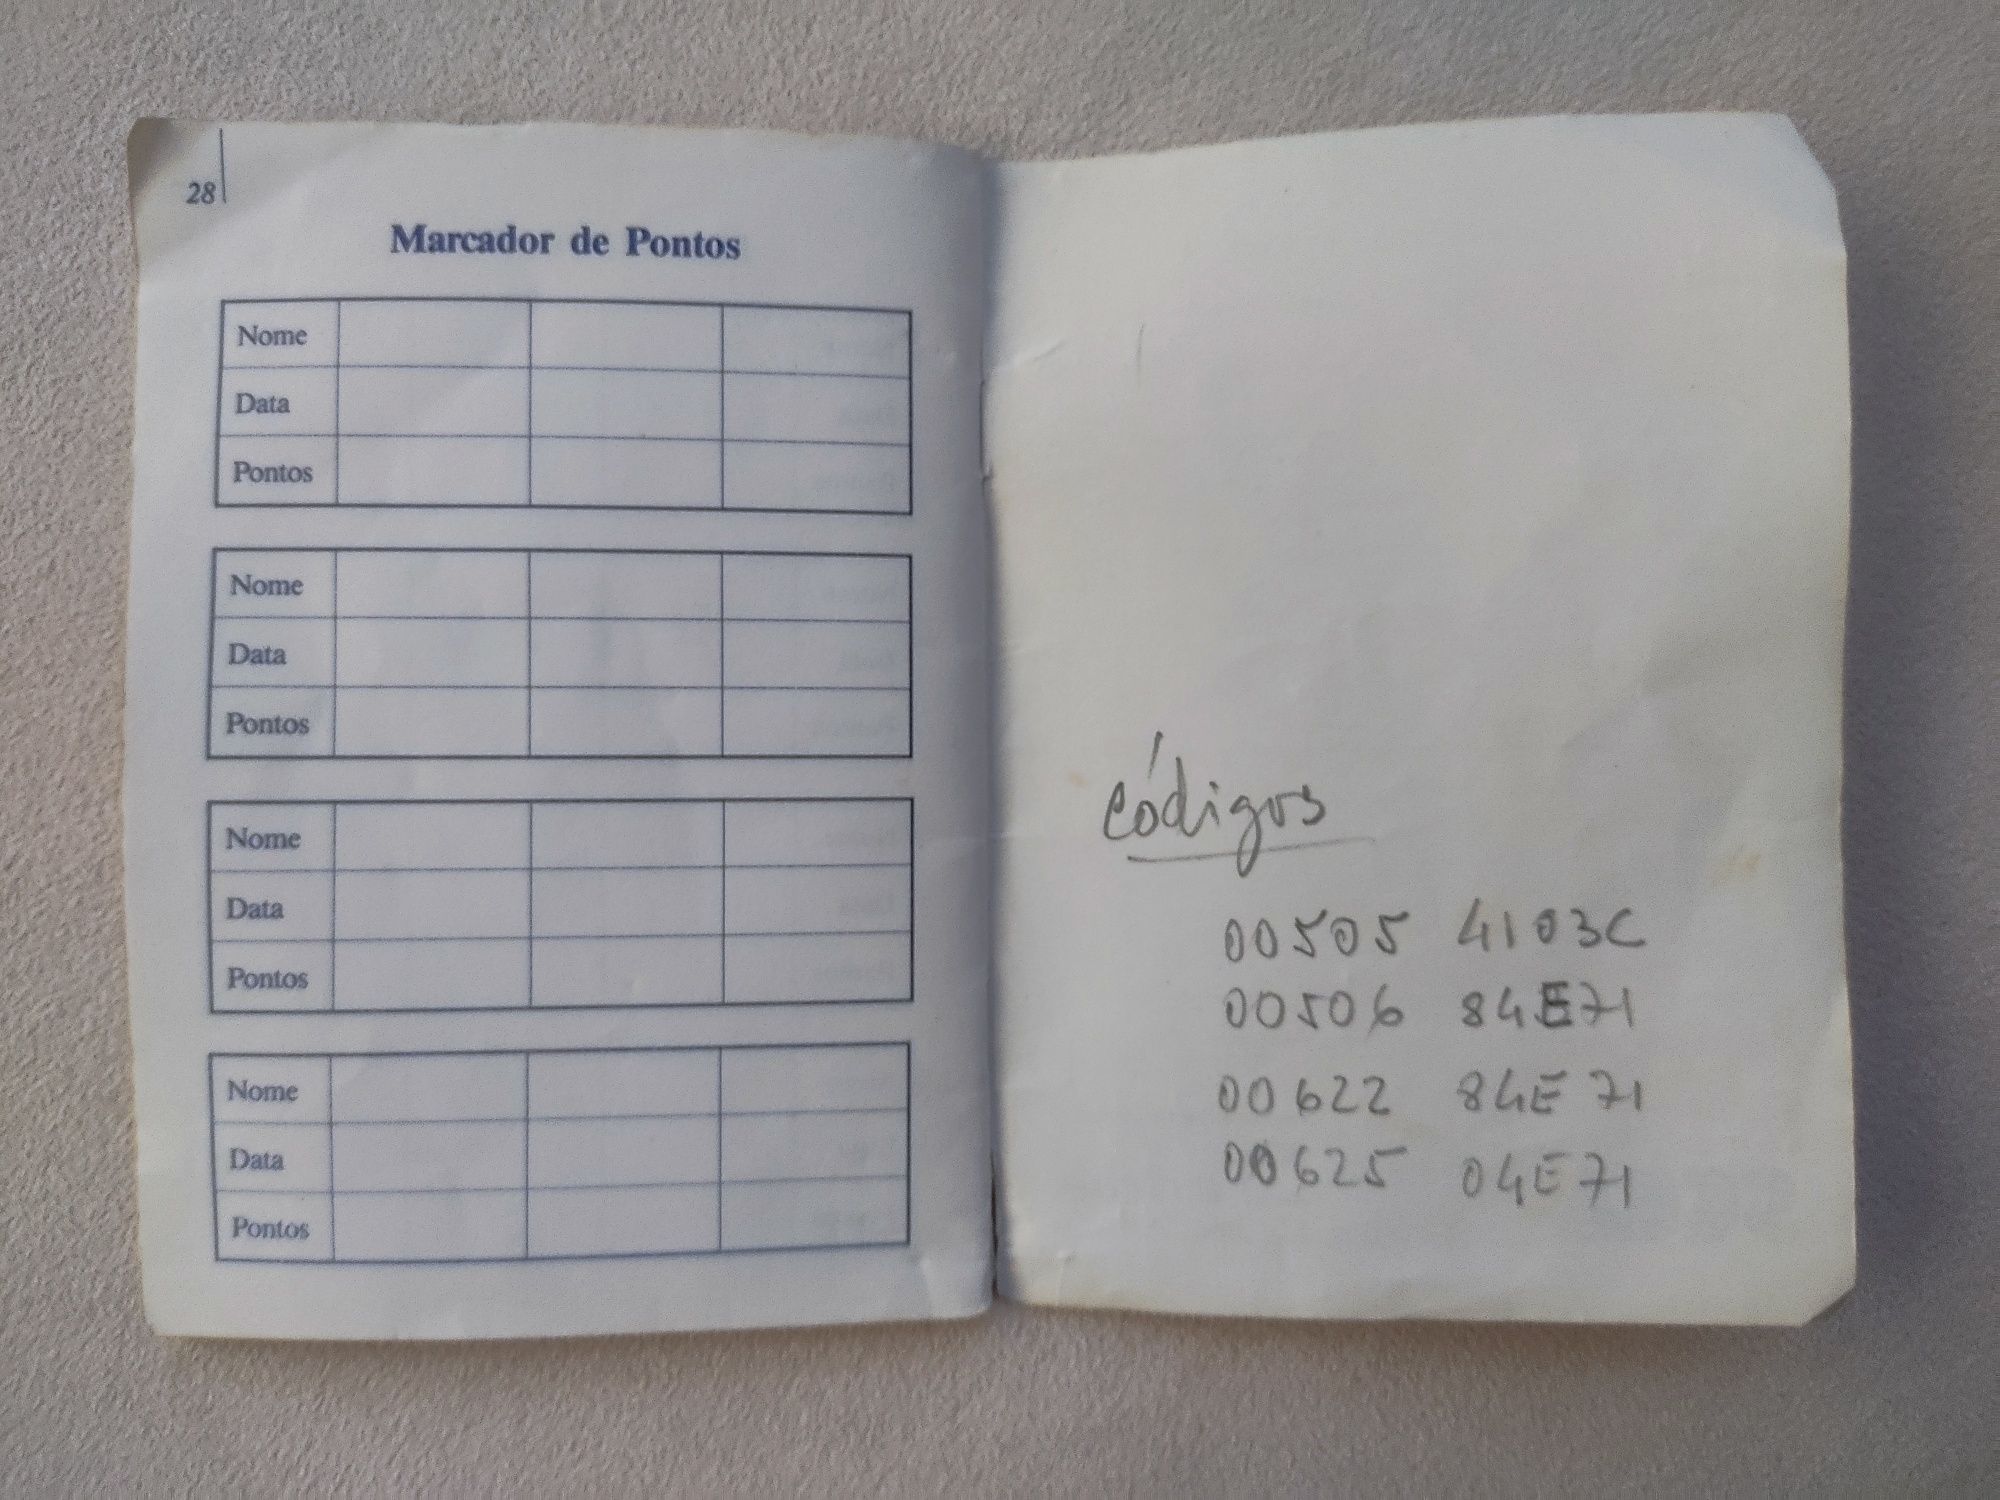 28
Marcador de Pontos
Nome
Data
Pontos
Nome
Data
Pontos
Nome
Data
Pontos
Nome
Data
Pontos
Códigos
00505 4103C
00506 84E71
00622 84E71
00625 04E71